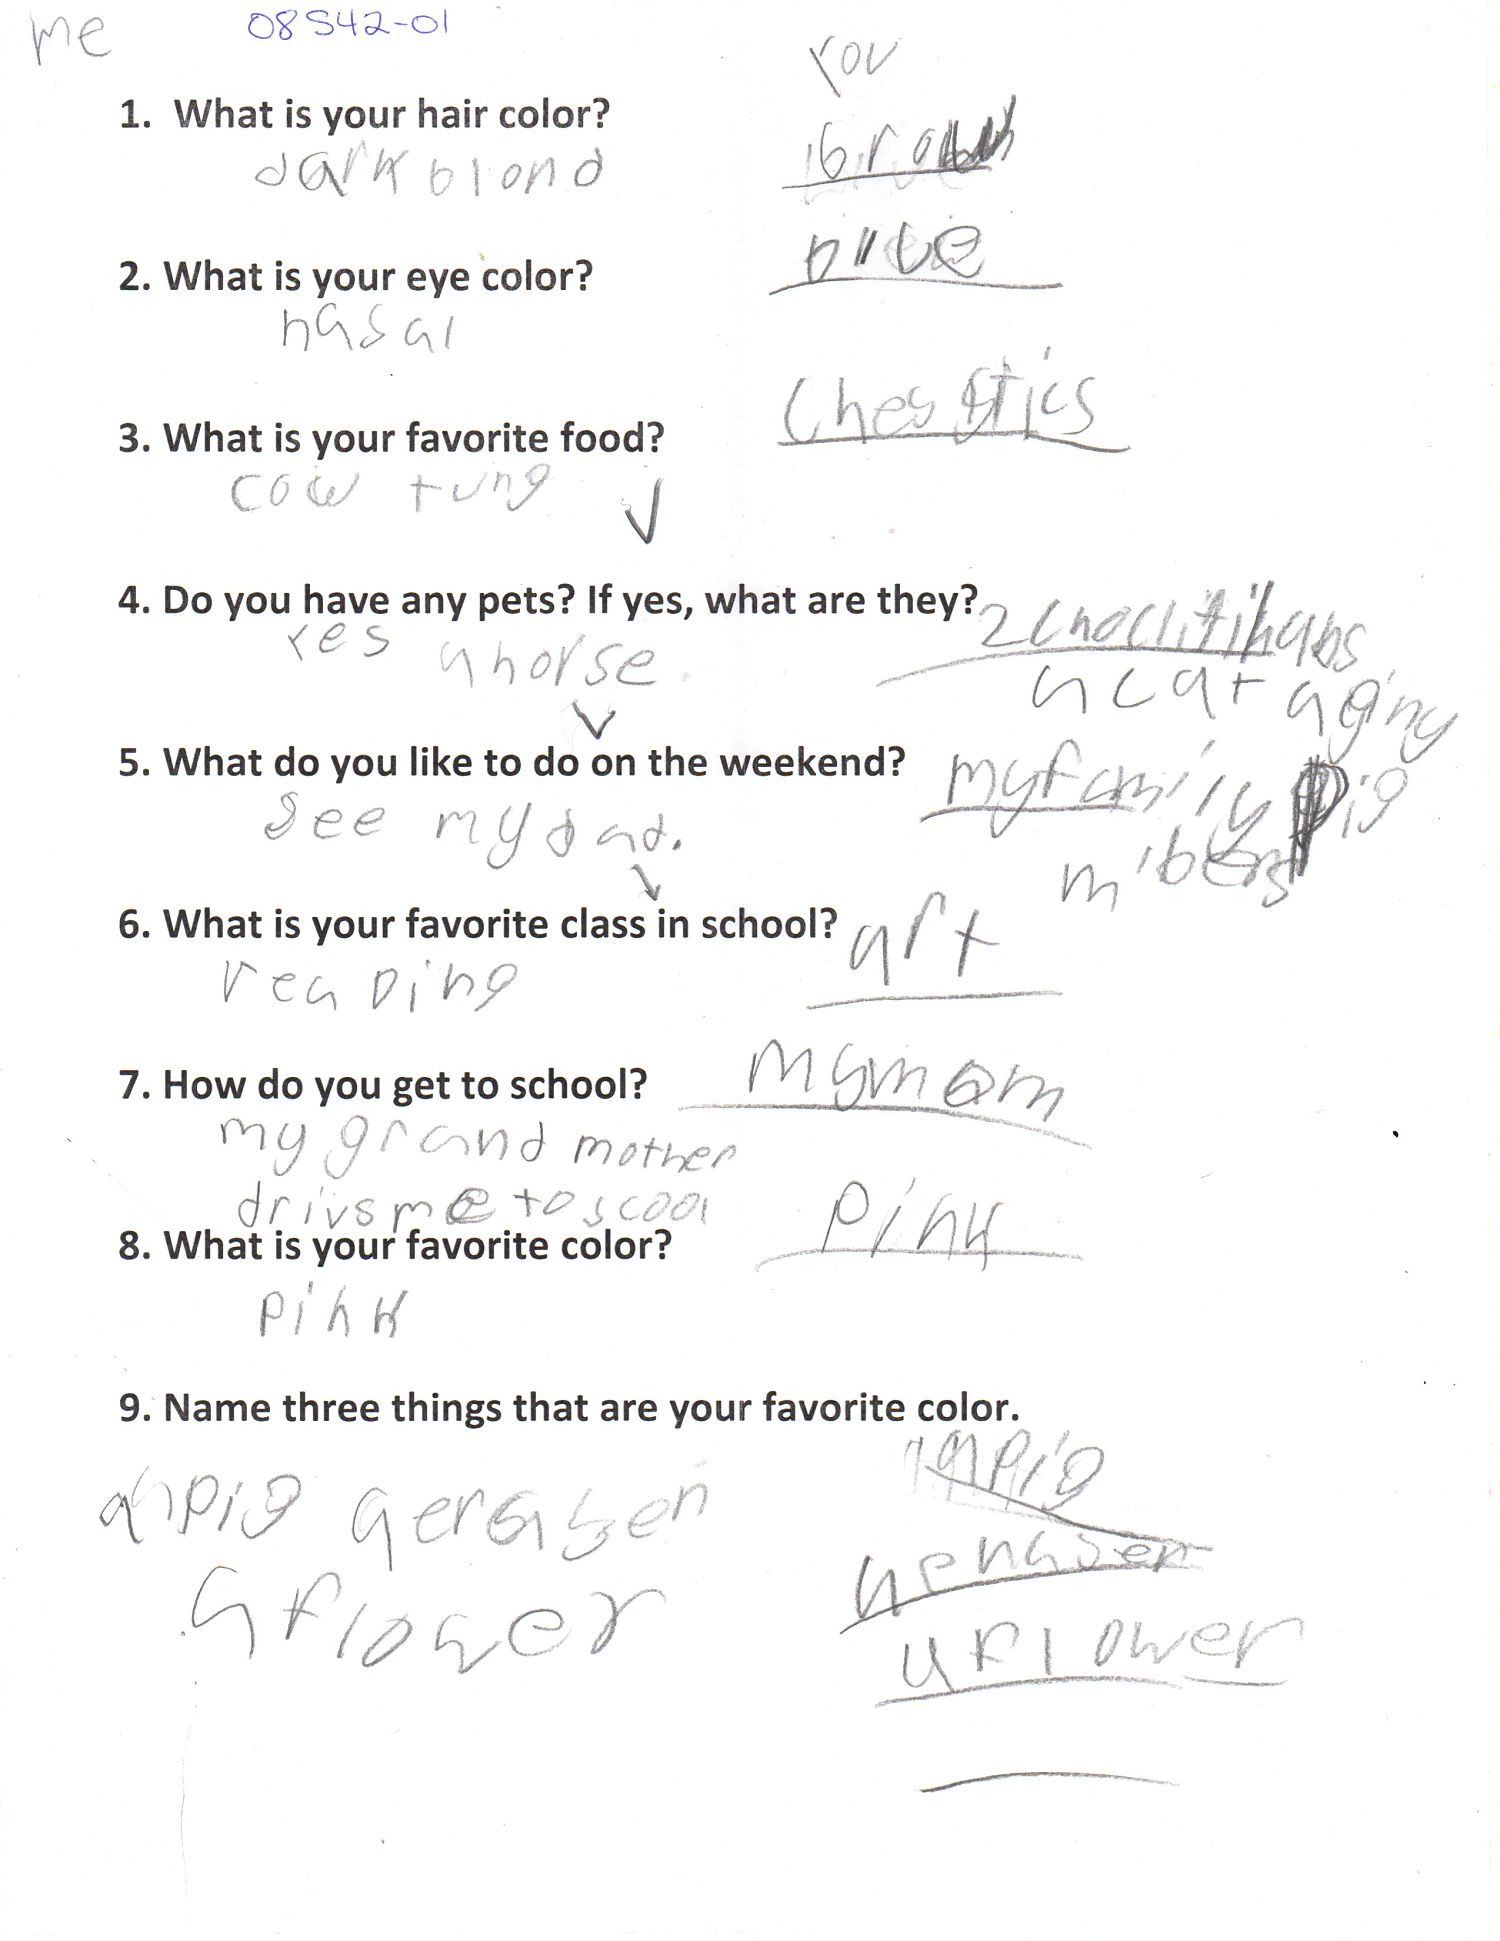 me 08S42-01
you
1. What is your hair color?
brown
dark blond
blue
2. What is your eye color?
hasal
chesstics
3. What is your favorite food?
cow tung
4. Do you have any pets? If yes, what are they?
2
yes a horse
a cat a giny
pig
5. What do you like to do on the weekend?
my family
mibers
see my dad.
6. What is your favorite class in school?
art
reaDing
my mom
7. How do you get to school?
my grand mother
drivs me to scool
pink
8. What is your favorite color?
pink
9. Name three things that are your favorite color.
a pig
a pig a eraser
a eraser
a flower
a flower